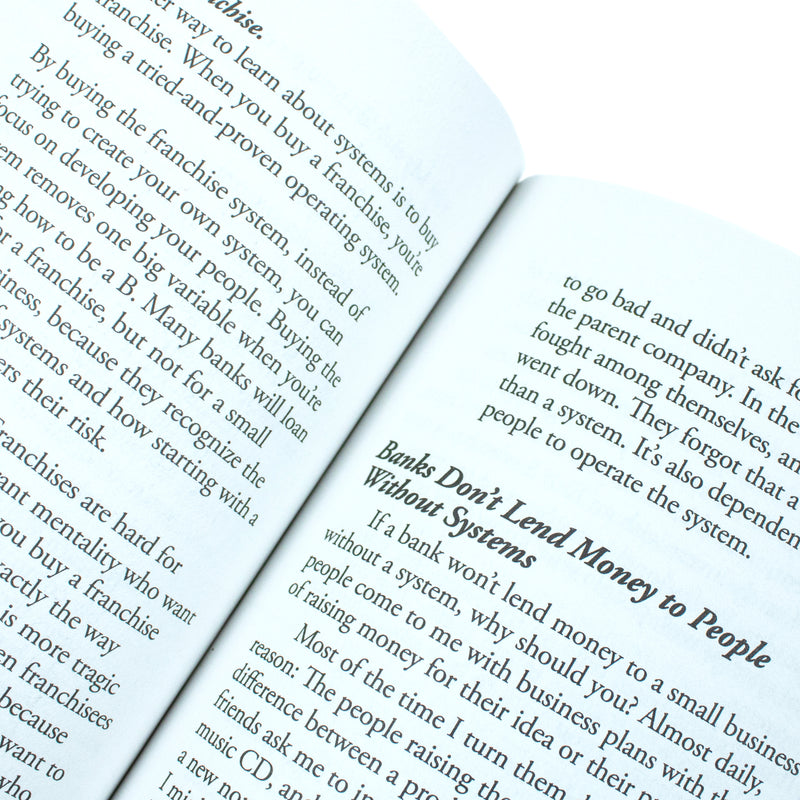 franchise.
way to learn about systems is to buy
franchise. When you buy a franchise, you're
buying a tried-and-proven operating system.
By buying the franchise system, instead of
trying to create your own system, you can
focus on developing your people. Buying the
removes one big variable when you're
how to be a B. Many banks will loan
a franchise, but not for a small
because they recognize the
systems and how starting with a
their risk.
franchises are hard for
mentality who want
you buy a franchise
exactly the way
is more tragic
franchisees
because
want to
who
to go bad and didn't ask
the parent company. In the
fought among themselves,
went down. They forgot that a
than a system. It's also dependent
people to operate the system.
Banks Don't Lend Money to People
Without Systems
If a bank won't lend money to a small business
without a system, why should you? Almost daily,
people come to me with business plans with
of raising money for their idea or their
Most of the time I turn them
reason: The people raising
difference between a
friends ask me to
music CD, and
a new